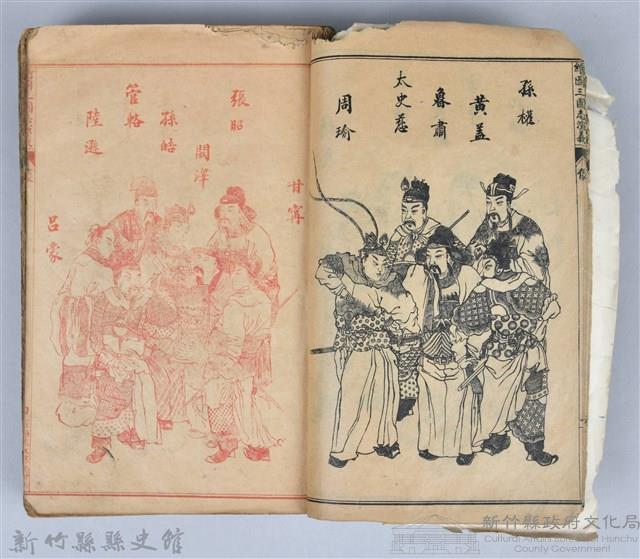 孫權
黃蓋
魯肅
太史慈
周瑜
繪圖三國志演義
像
甘寧
張昭
闞澤
孫皓
管輅
陸遜
呂蒙
新竹縣縣史館
新竹縣政府文化局
Cultural Affairs Bureau of Hsinchu
County Government